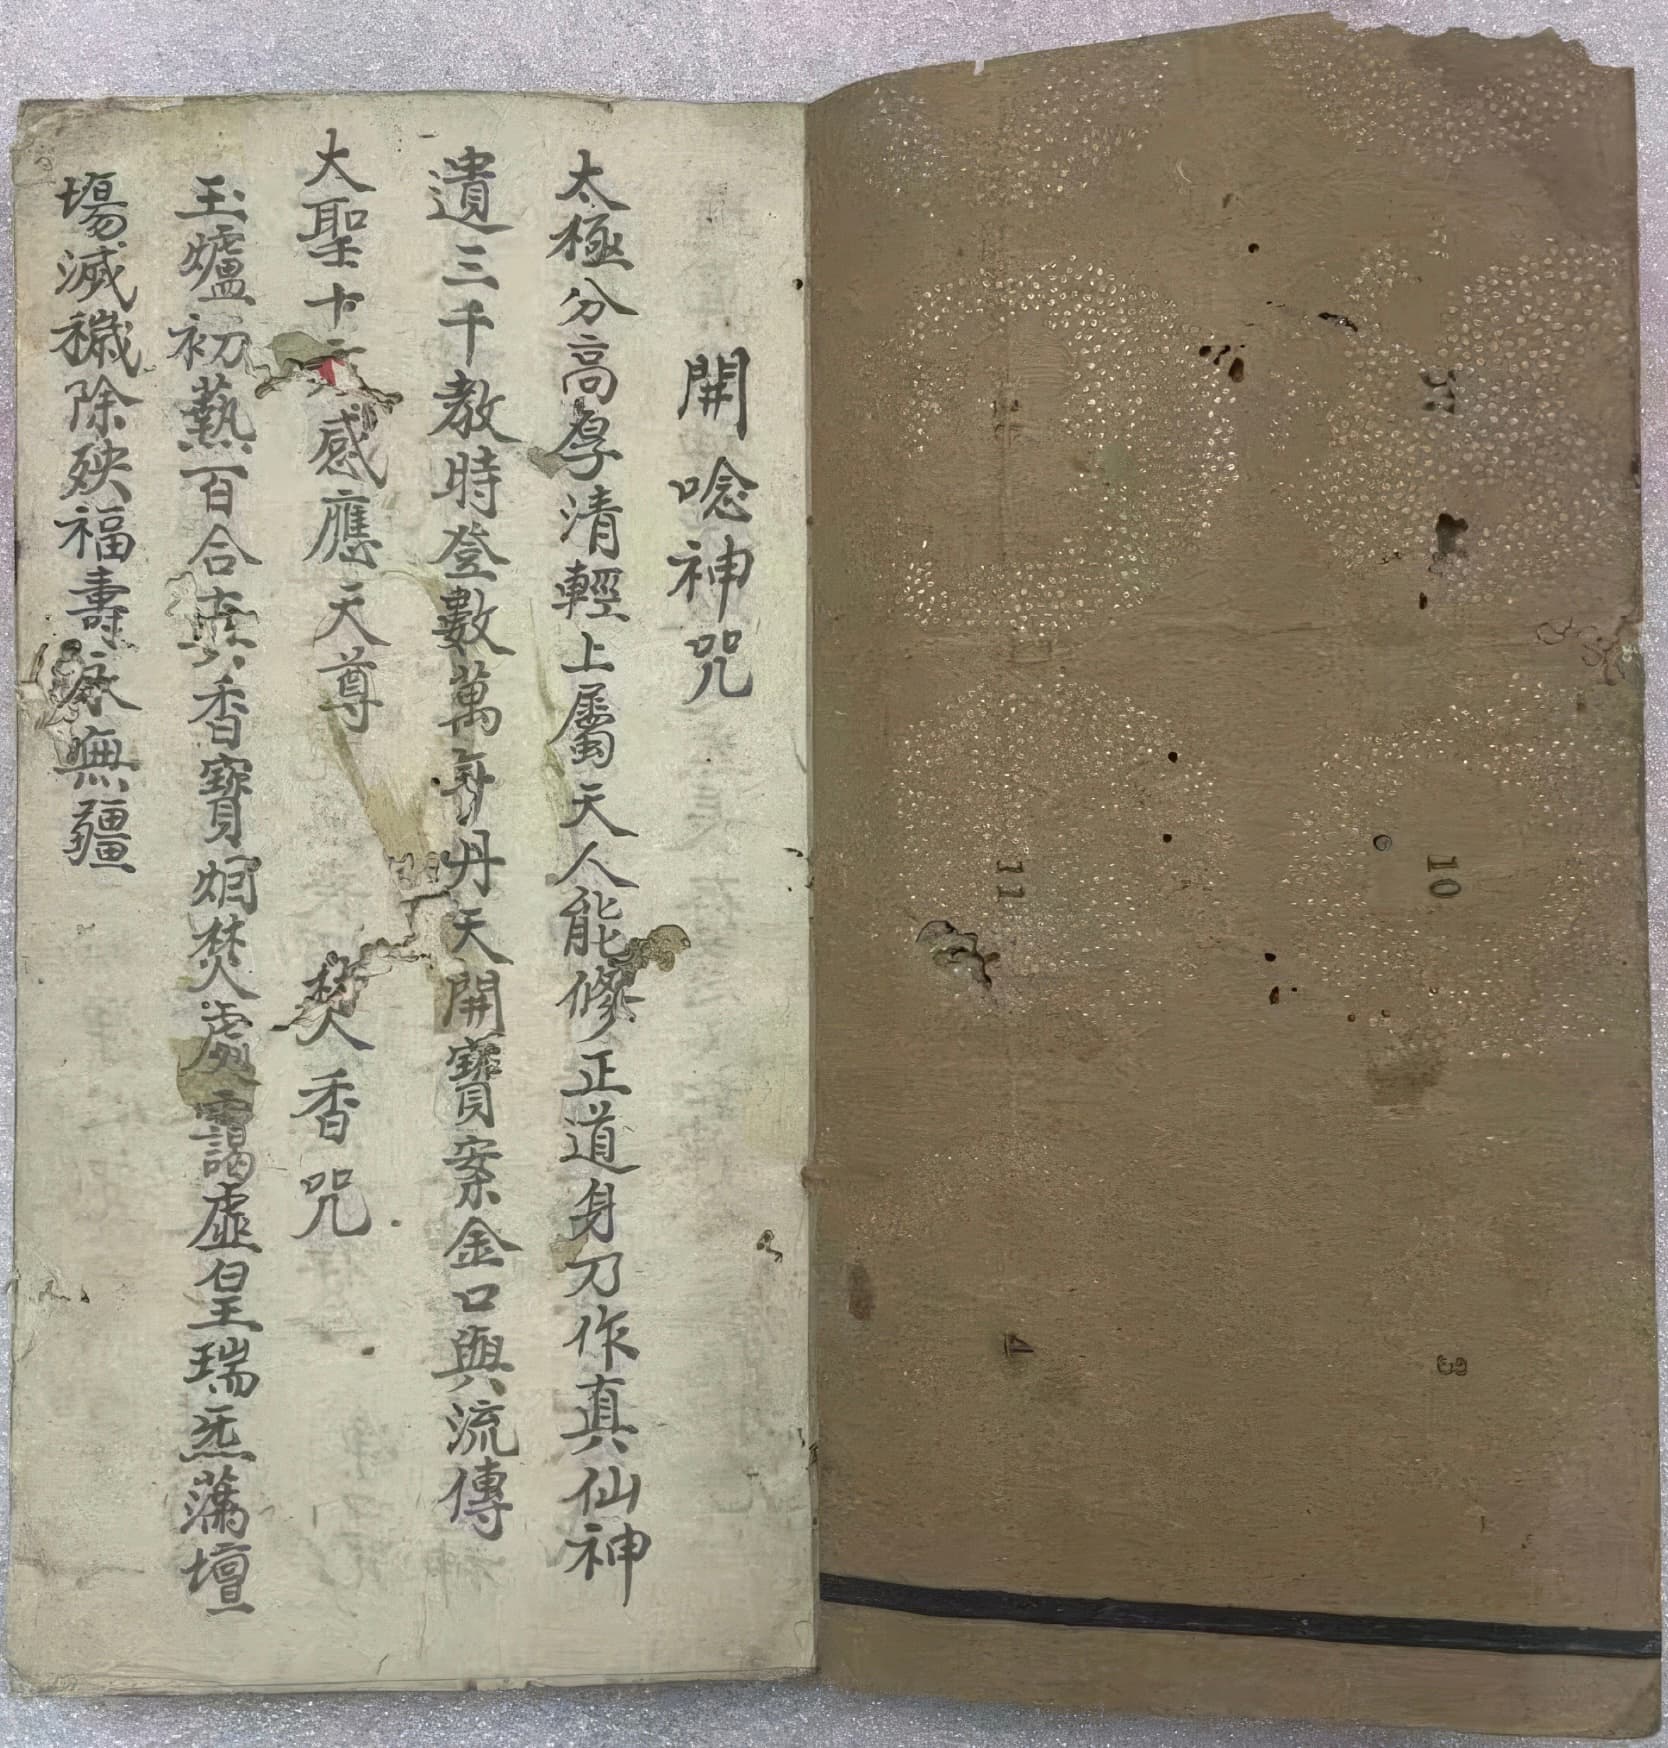 開唸神咒
太極分高厚清輕上屬天人能修正道身乃作真仙神
遺三千教時登數萬年丹天開寶案金口與流傳
大聖十感應天尊 焚香咒
玉爐初爇百合真香寶烟焚處靄虛皇瑞炁滿壇
塲滅穢除殃福壽永無疆
10
11
4